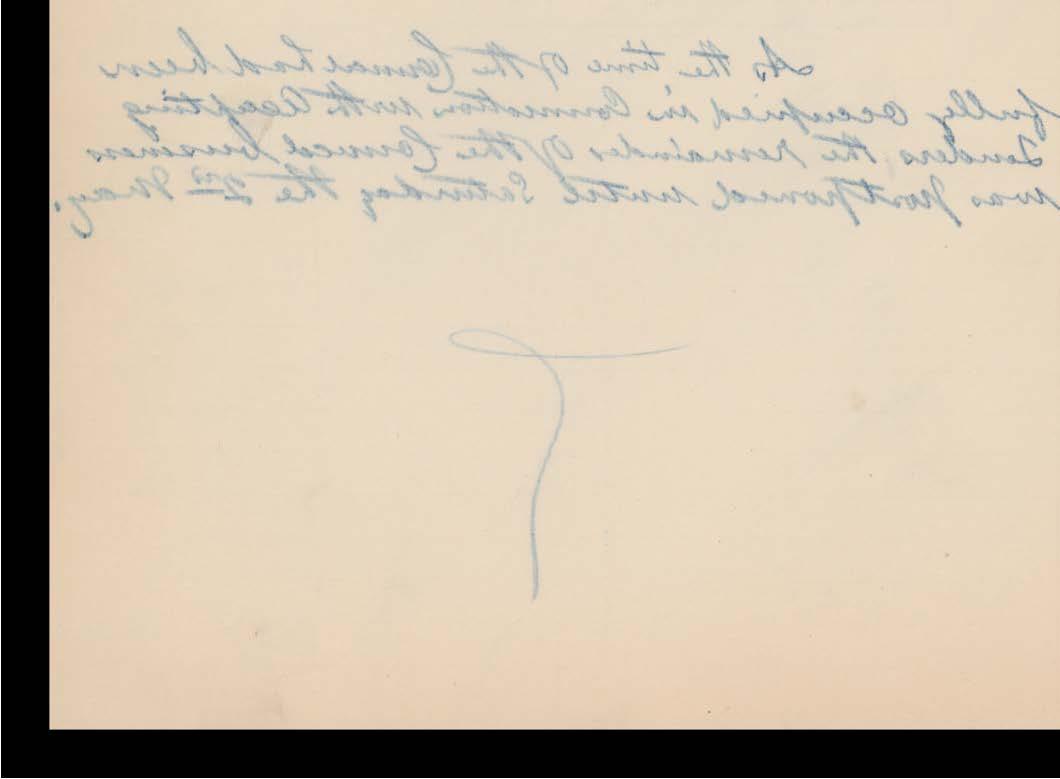 As the time of the Council had been
fully occupied in Connection with accepting
Tenders the remainder of the Council business
was postponed until Saturday the 2nd May.